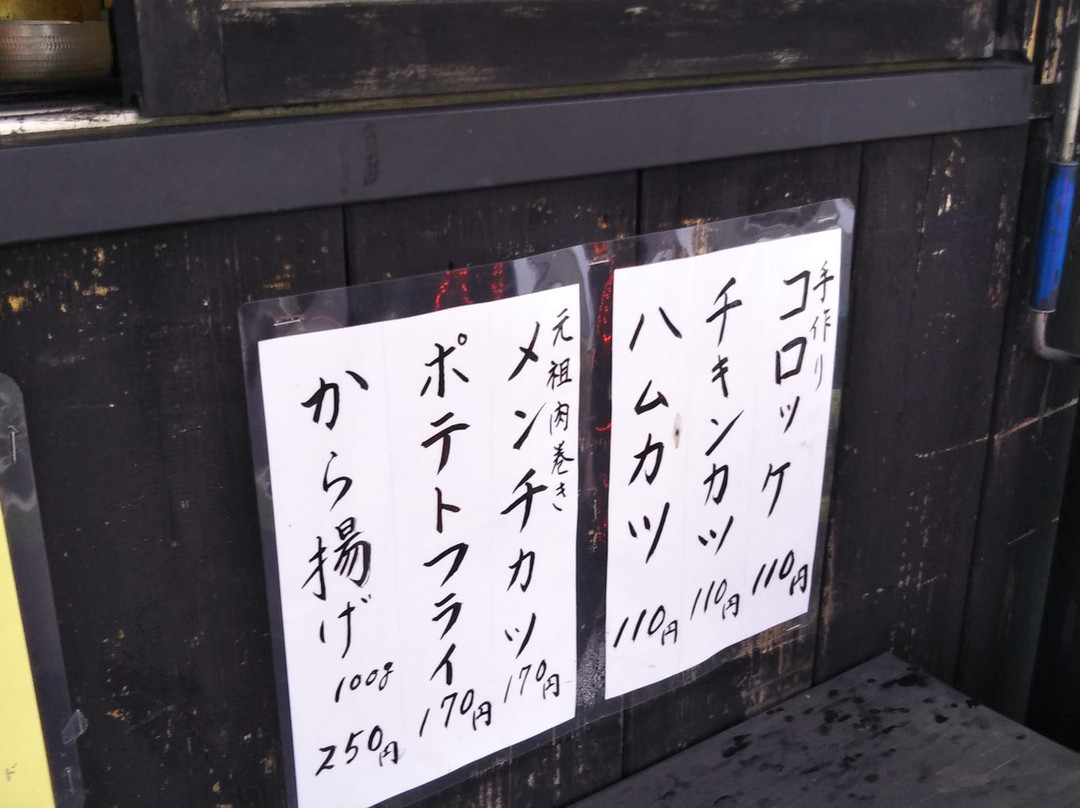 手作り
コロッケ 110円
チキンカツ 110円
ハムカツ 110円
元祖肉巻き
メンチカツ 170円
ポテトフライ 170円
から揚げ 100g 250円